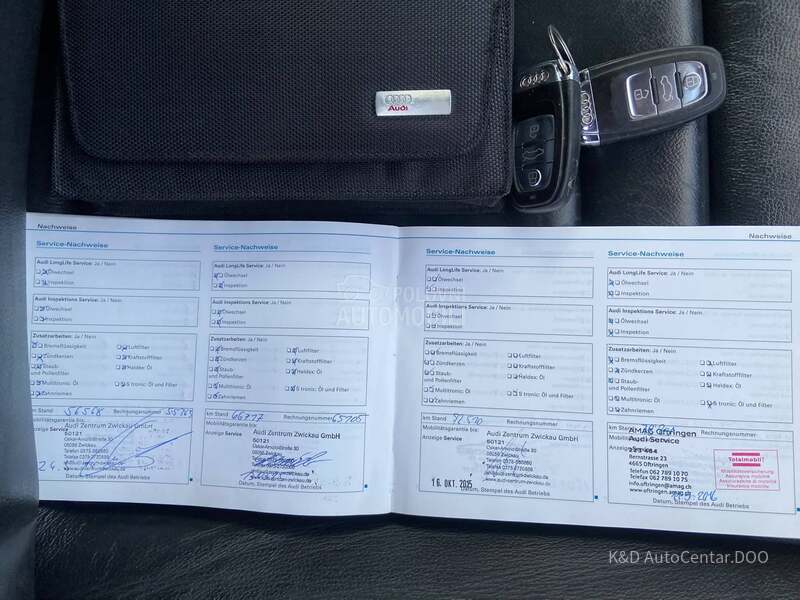 Audi
Nachweise
Service-Nachweise
Audi LongLife Service: Ja / Nein
Ölwechsel
Inspektion
Audi Inspektions Service: Ja / Nein
Ölwechsel
Inspektion
Zusatzarbeiten: Ja / Nein
Bremsflüssigkeit
Luftfilter
Zündkerzen
Kraftstofffilter
Staub-
und Pollenfilter
Haldex: Öl
Multitronic: Öl
S tronic: Öl und Filter
Zahnriemen
km Stand 56568 Rechnungsnummer
Mobilitätsgarantie bis:
Anzeige Service
Audi Zentrum Zwickau GmbH
50121
08056 Zwickau
Datum, Stempel des Audi Betriebs
Service-Nachweise
Audi LongLife Service: Ja / Nein
Ölwechsel
Inspektion
Audi Inspektions Service: Ja / Nein
Ölwechsel
Inspektion
Zusatzarbeiten: Ja / Nein
Bremsflüssigkeit
Luftfilter
Zündkerzen
Kraftstofffilter
Staub-
und Pollenfilter
Haldex: Öl
Multitronic: Öl
S tronic: Öl und Filter
Zahnriemen
km Stand 66717 Rechnungsnummer 65705
Mobilitätsgarantie bis:
Anzeige Service
Audi Zentrum Zwickau GmbH
50121
08056 Zwickau
Datum, Stempel des Audi Betriebs
Service-Nachweise
Audi LongLife Service: Ja / Nein
Ölwechsel
Inspektion
Audi Inspektions Service: Ja / Nein
Ölwechsel
Inspektion
Zusatzarbeiten: Ja / Nein
Bremsflüssigkeit
Luftfilter
Zündkerzen
Kraftstofffilter
Staub-
und Pollenfilter
Haldex: Öl
Multitronic: Öl
S tronic: Öl und Filter
Zahnriemen
km Stand Rechnungsnummer
Mobilitätsgarantie bis:
Anzeige Service
Audi Zentrum Zwickau GmbH
50121
08056 Zwickau
www.audi-zentrum-zwickau.de
16. OKT. 2015
Datum, Stempel des Audi Betriebs
Nachweise
Service-Nachweise
Audi LongLife Service: Ja / Nein
Ölwechsel
Inspektion
Audi Inspektions Service: Ja / Nein
Ölwechsel
Inspektion
Zusatzarbeiten: Ja / Nein
Bremsflüssigkeit
Luftfilter
Zündkerzen
Kraftstofffilter
Staub-
und Pollenfilter
Haldex: Öl
Multitronic: Öl
S tronic: Öl und Filter
Zahnriemen
Rechnungsnummer
Mobilitätsgarantie bis:
Anzeige Service
AMAG Oftringen
Audi Service
Bernstrasse 23
4665 Oftringen
Telefon 062 789 10 70
Telefax 062 789 10 71
info.oftringen@amag.ch
www.oftringen.amag.ch
Totalmobil!
Datum, Stempel des Audi Betriebs
POLOVNI
AUTOMOBILI
K&D AutoCentar.DOO